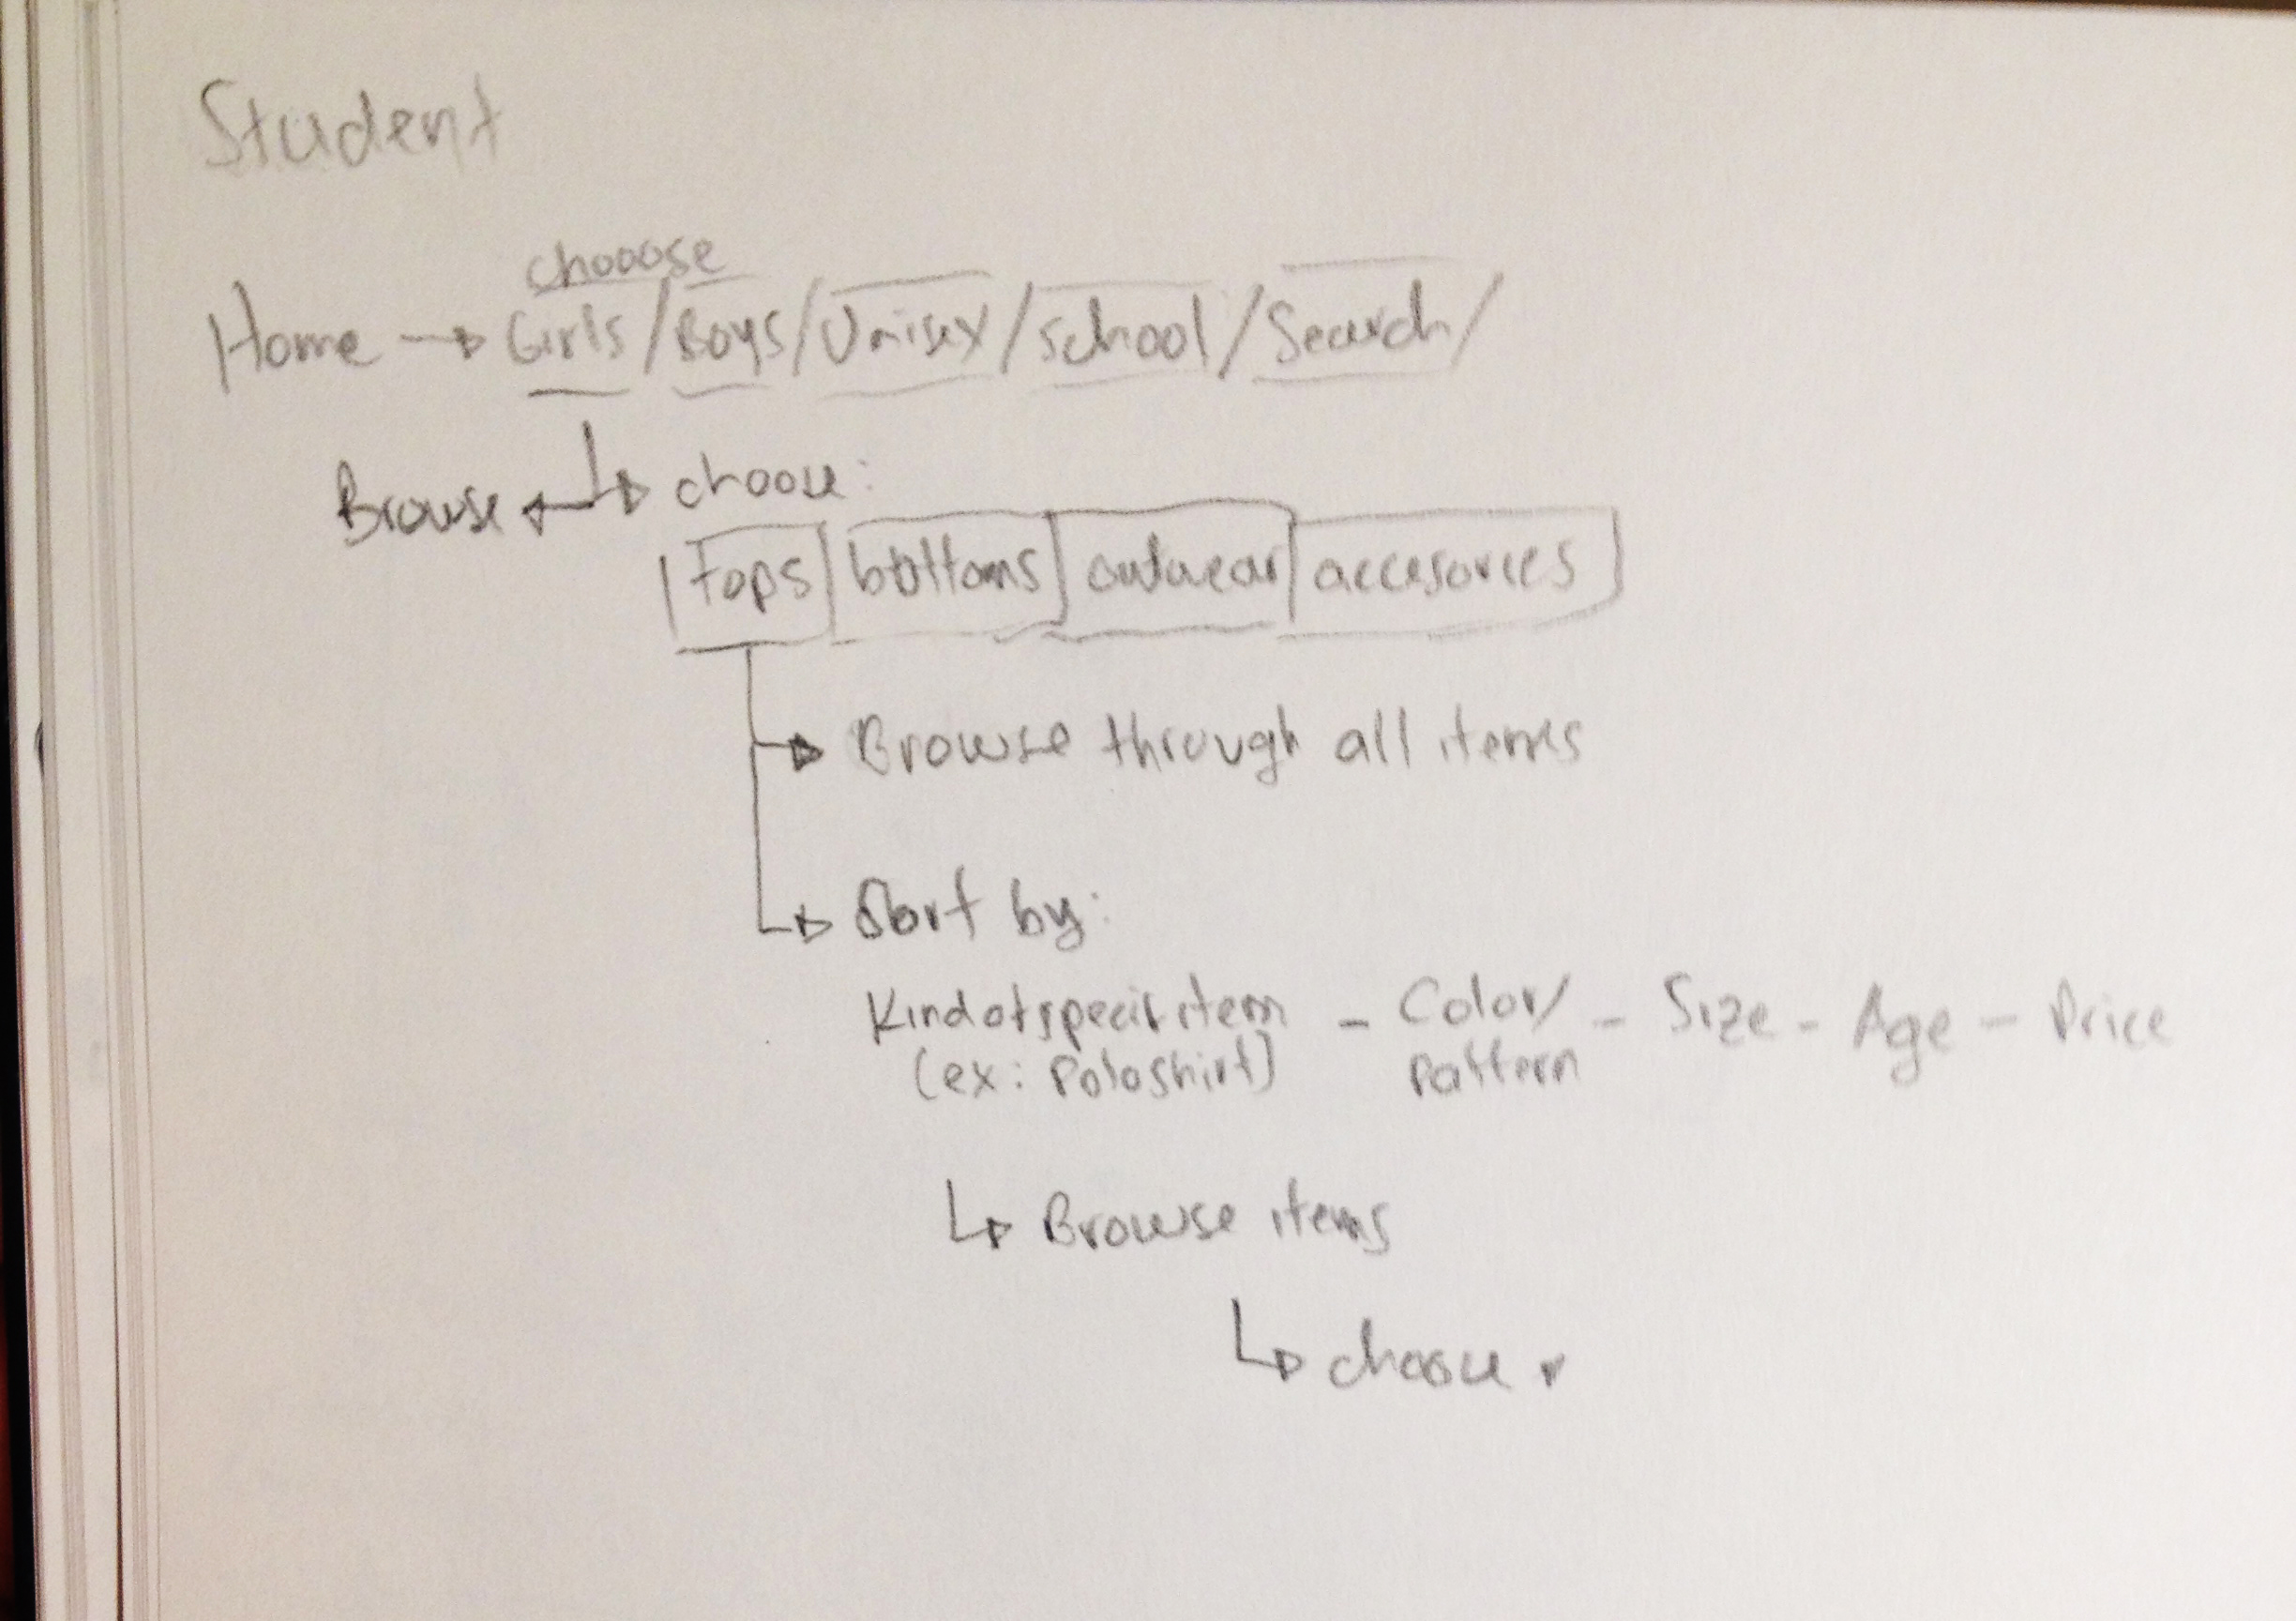 Student
chooose
Home → Girls / Boys / Unisex / School / Search /
Browse ← → choose:
Tops | bottoms | outwear | accesories
→ Browse through all items
→ Sort by:
Kind of specif item - Color/ - Size - Age - Price
(ex: Polo shirt) pattern
→ Browse items
→ choose